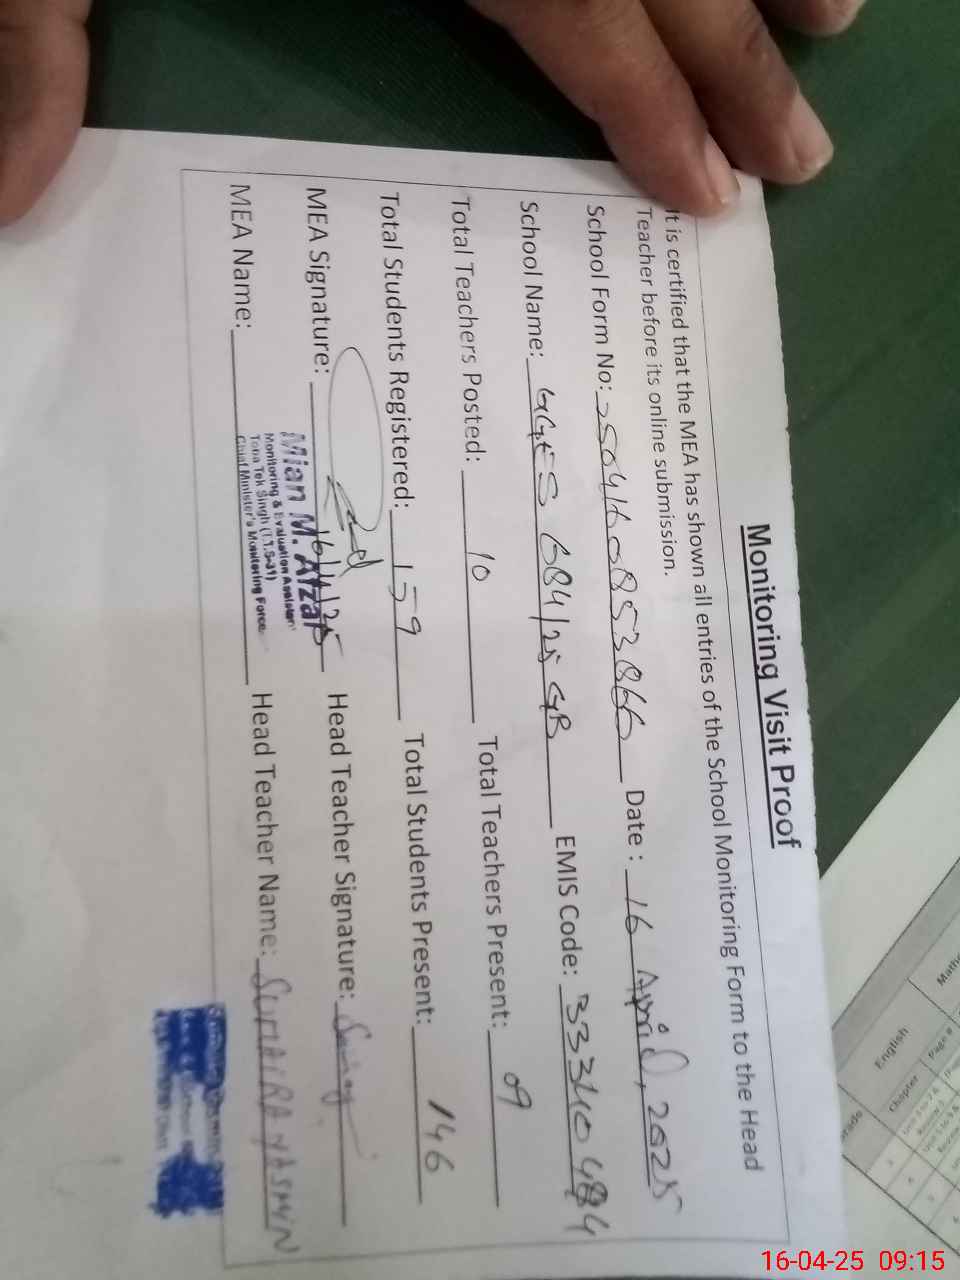 Monitoring Visit Proof
It is certified that the MEA has shown all entries of the School Monitoring Form to the Head
Teacher before its online submission.
School Form No: 2504160853866 Date : 16 April, 2025
School Name: GGES 684/25 GB EMIS Code: 33310484
Total Teachers Posted: 10 Total Teachers Present: 09
Total Students Registered: 159 Total Students Present: 146
MEA Signature: 16/4/25 Head Teacher Signature:
MEA Name: Head Teacher Name: SUMAIRA YASMIN
Mian M. Afzal
Monitoring & Evaluation Assistant
Toba Tek Singh (T.T.S-31)
Chief Minister's Monitoring Force
English
Chapter
Page #
16-04-25 09:15